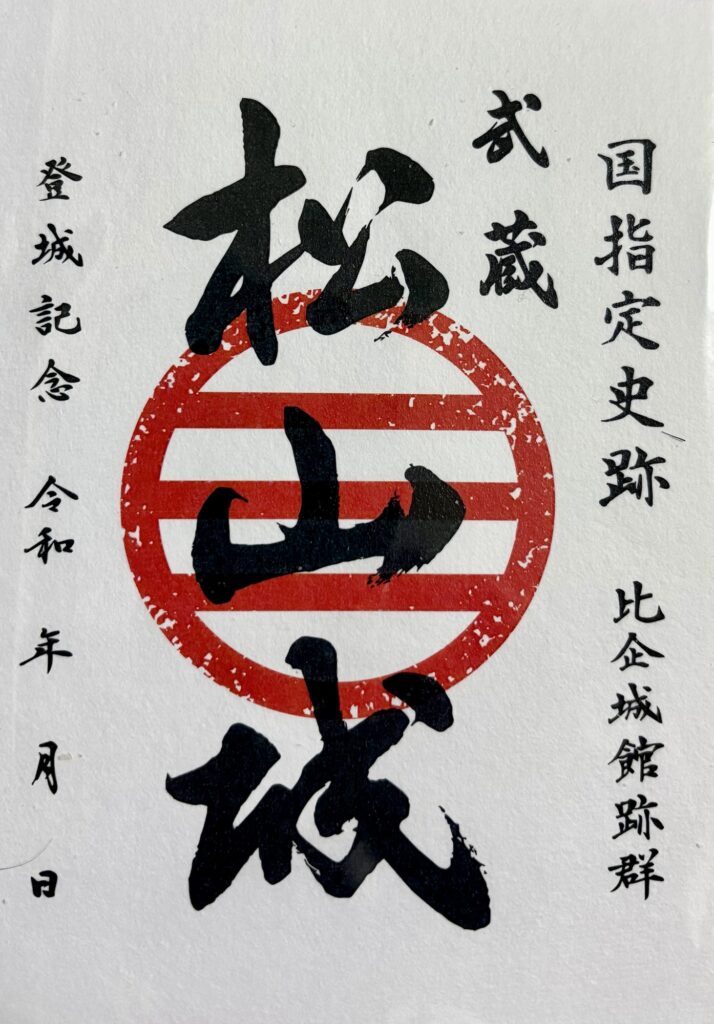 国指定史跡 比企城館跡群
武蔵
松山城
登城記念 令和 年 月 日